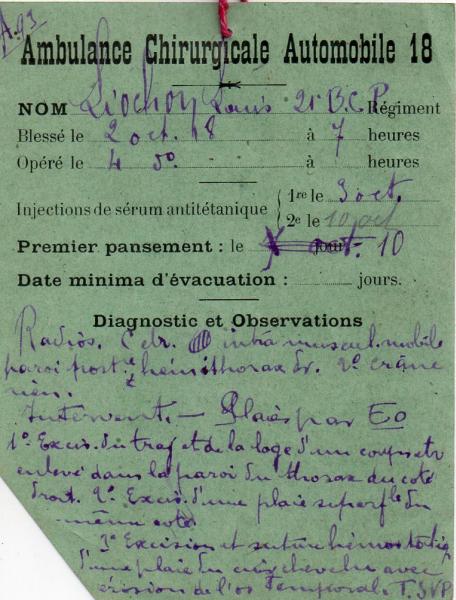 A. 93
Ambulance Chirurgicale Automobile 18
NOM Liochon Louis 21 B.C.P. Régiment
Blessé le 2 oct. 18 à 7 heures
Opéré le 4 do à heures
Injections de sérum antitétanique { 1re le 3 oct.
2e le 10 oct
Premier pansement : le oct. 10
Date minima d'évacuation : jours.
Diagnostic et Observations
Radios. C etr. intra muscul. mobile
paroi postre hémithorax dr. 2° crâne
rien.
Intervent. — Plaies par EO
1° Excis. du traj et de la loge d'un corps etr
enlevé dans la paroi du thorax du coté
droit. 2° Excis. d'une plaie superfle du
même coté
3° Excision et suture hémostatiq
d'une plaie du cuir chevelu avec
érosion de l'os temporal. T.SVP